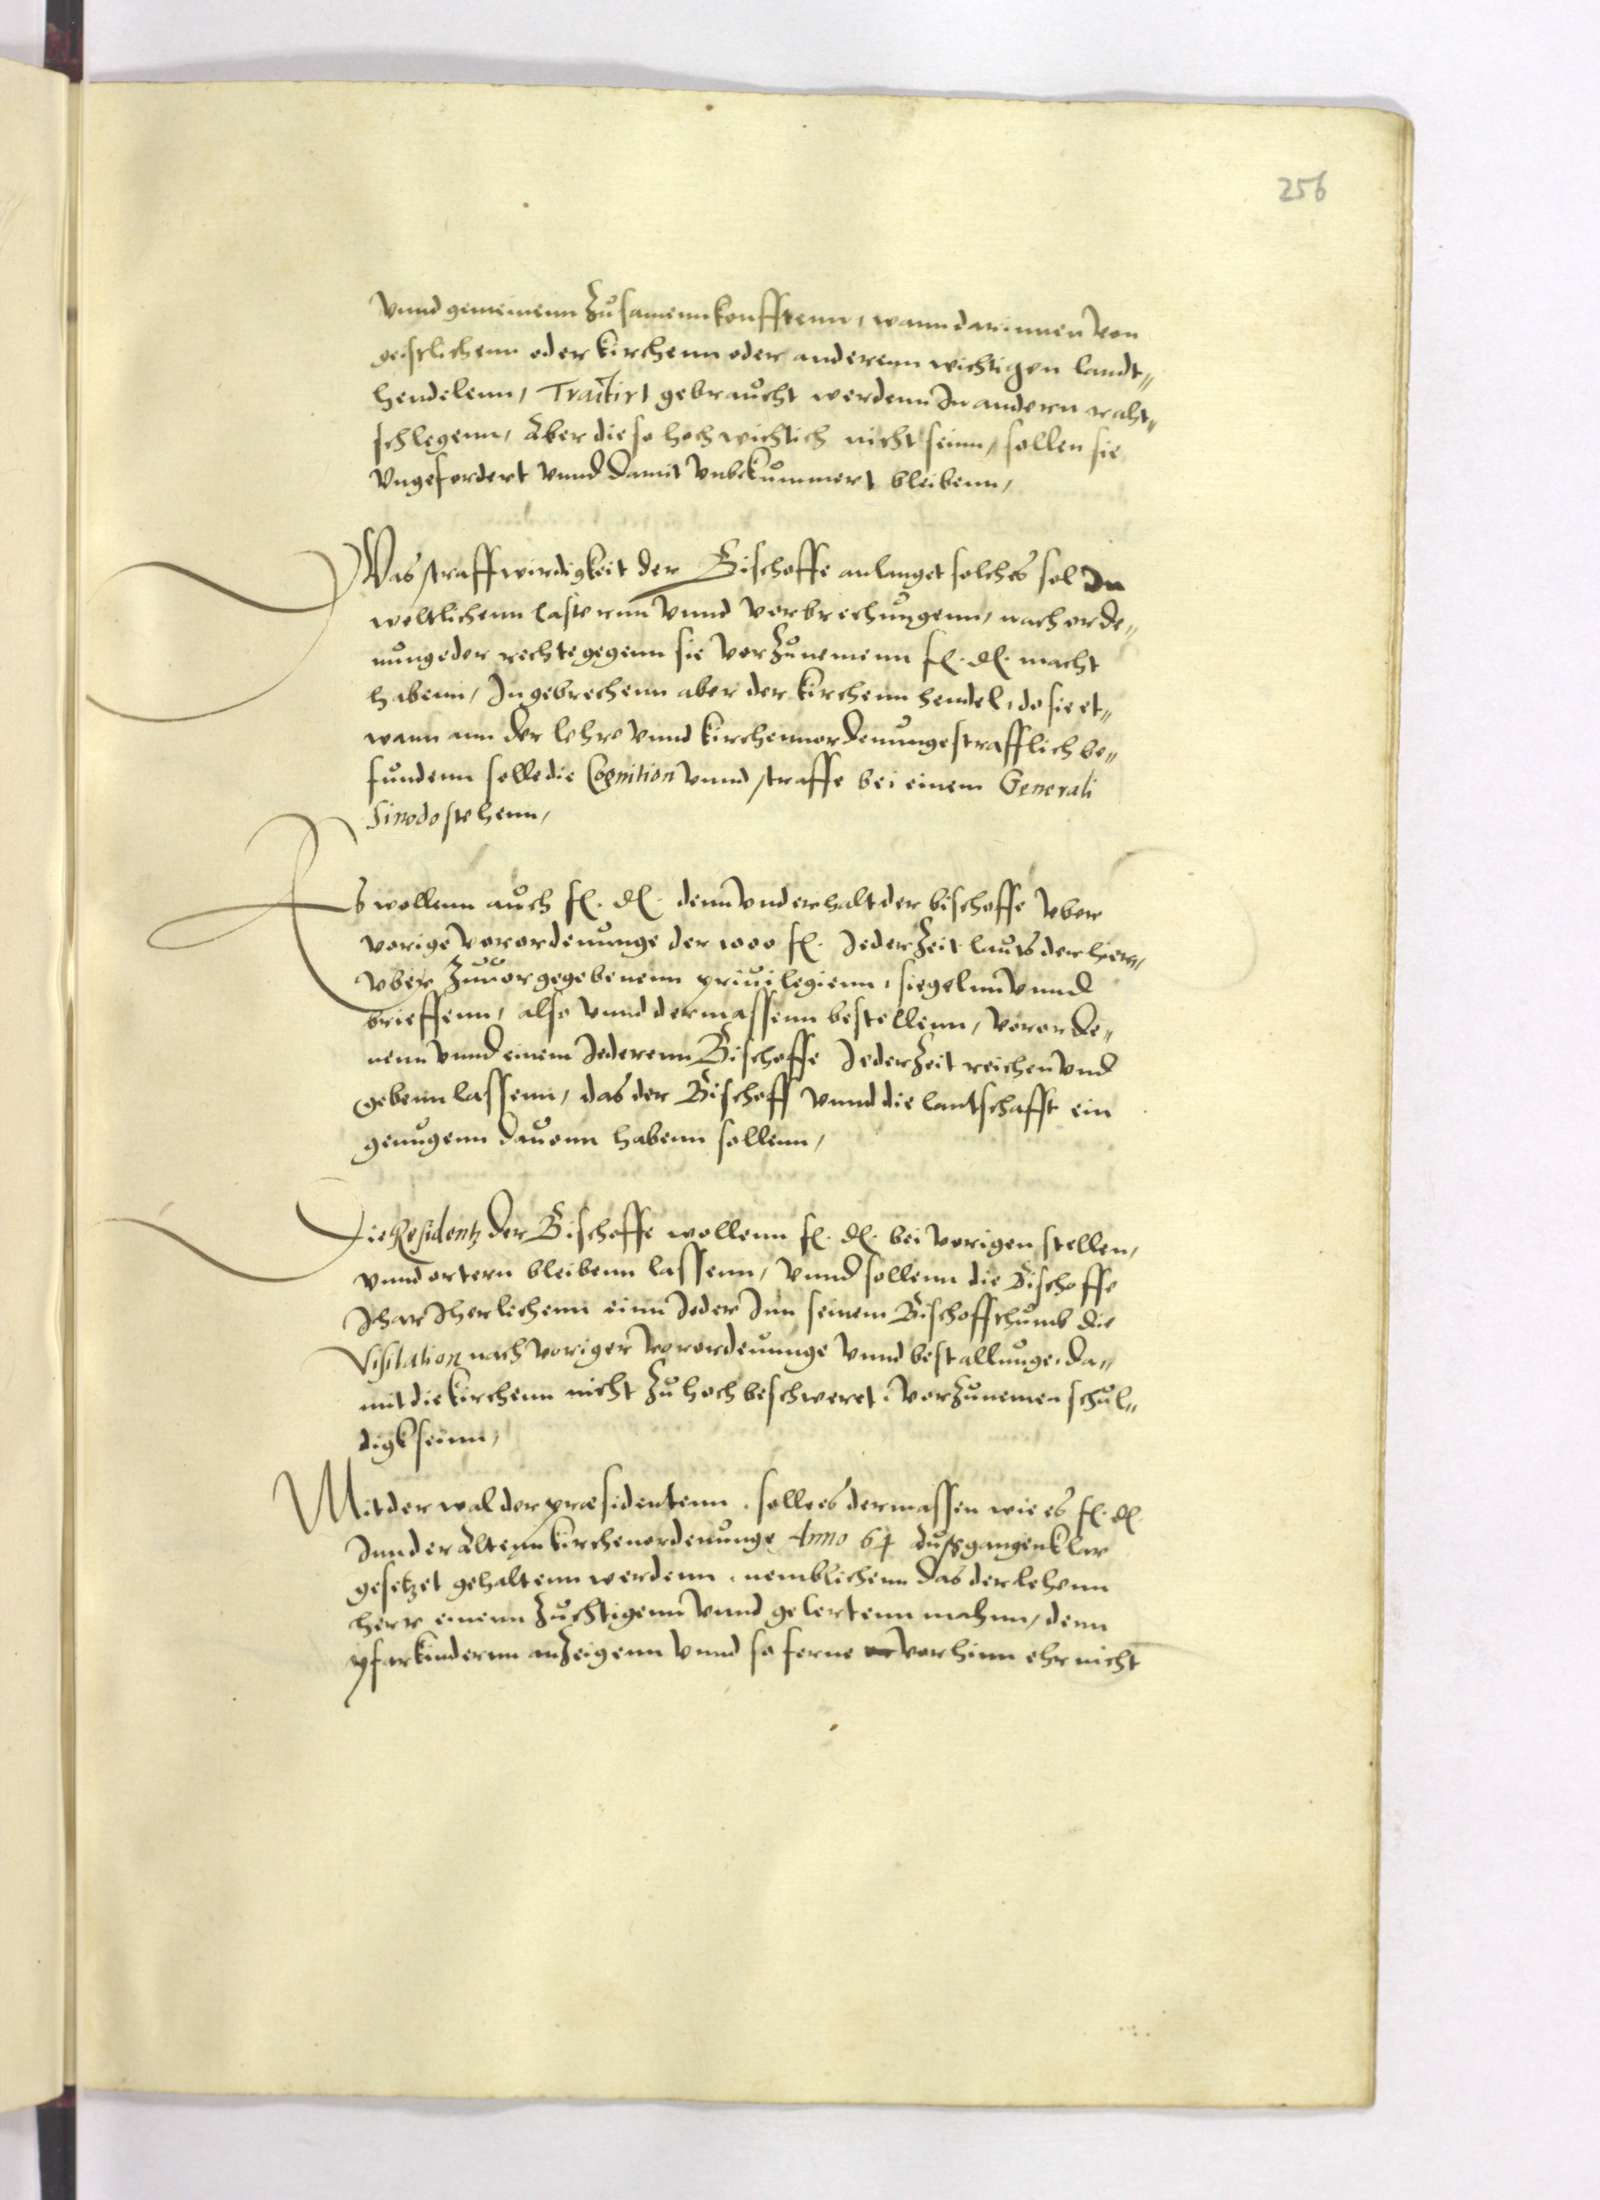 256
vnnd gemeinenn Zusamennkonfftenn, wann darinnen von
geistlichenn oder kirchenn oder anderenn wichtigen landt„
hendelenn, Tractirt gebraucht werdenn In andern raht„
schlegenn, Aber die so hoch wichtich nicht seinn, sollen sie
vngefordert vnnd damit vnbekummert bleibenn,
Was straffwirdigkeit der Bischoffe anlanget solches sol In
weltlichenn lasterun vnnd vorbrechungenn, nach orde„
nunge der rechte gegenn sie vorZunemenn fl. dl. macht
habenn, In gebrechenn aber der kirchenn hendel, do sie et„
wann ann der lehre vnnd kirchennordenunge strafflich be„
fundenn solle die Cognition vnnd straffe bei einem Generali
Sinodo stehenn,
Es wollenn auch fl. dl. denn vnderhalt der bischoffe vber
vorige vorordenunge der 1000 fl. Jeder Zeit lauts der hier,
vber Zuuor gegebenenn priuilegienn, siegelnn vnnd
brieffenn, also vnnd dermassenn bestellenn, vororde„
nenn vnnd einem Jederenn Bischoffe Jeder Zeit reichen vnd
gebenn lassenn, das der Bischoff vnnd die lantschafft ein
genugenn dauonn habenn sollenn,
Die Residentz der Bischoffe wollenn fl. dl. bei vorigen stellen,
vnnd ortern bleibenn lassenn, vnnd sollenn die Bischoffe
Jhar Jherlichenn einn Jeder Inn seinem Bischoffthumb die
Visitation nach voriger vorordenunge vnnd bestallunge, da„
mit die kirchenn nicht Zu hoch beschweret, vorZunemen schul„
digk seinn,
Mit der wal der præsidentenn, solle es dermassen wie es fl. dl.
Inn der Altenn kirchenordenunge Anno 64 außgangen klar
gesetzet gehaltenn werdenn, nemblichenn das der lehenn
herr einenn Zuchtigenn vnnd gelertenn mahnn, denn
pfarkindernn anZeigenn vnnd so ferne vorhinn ehr nicht